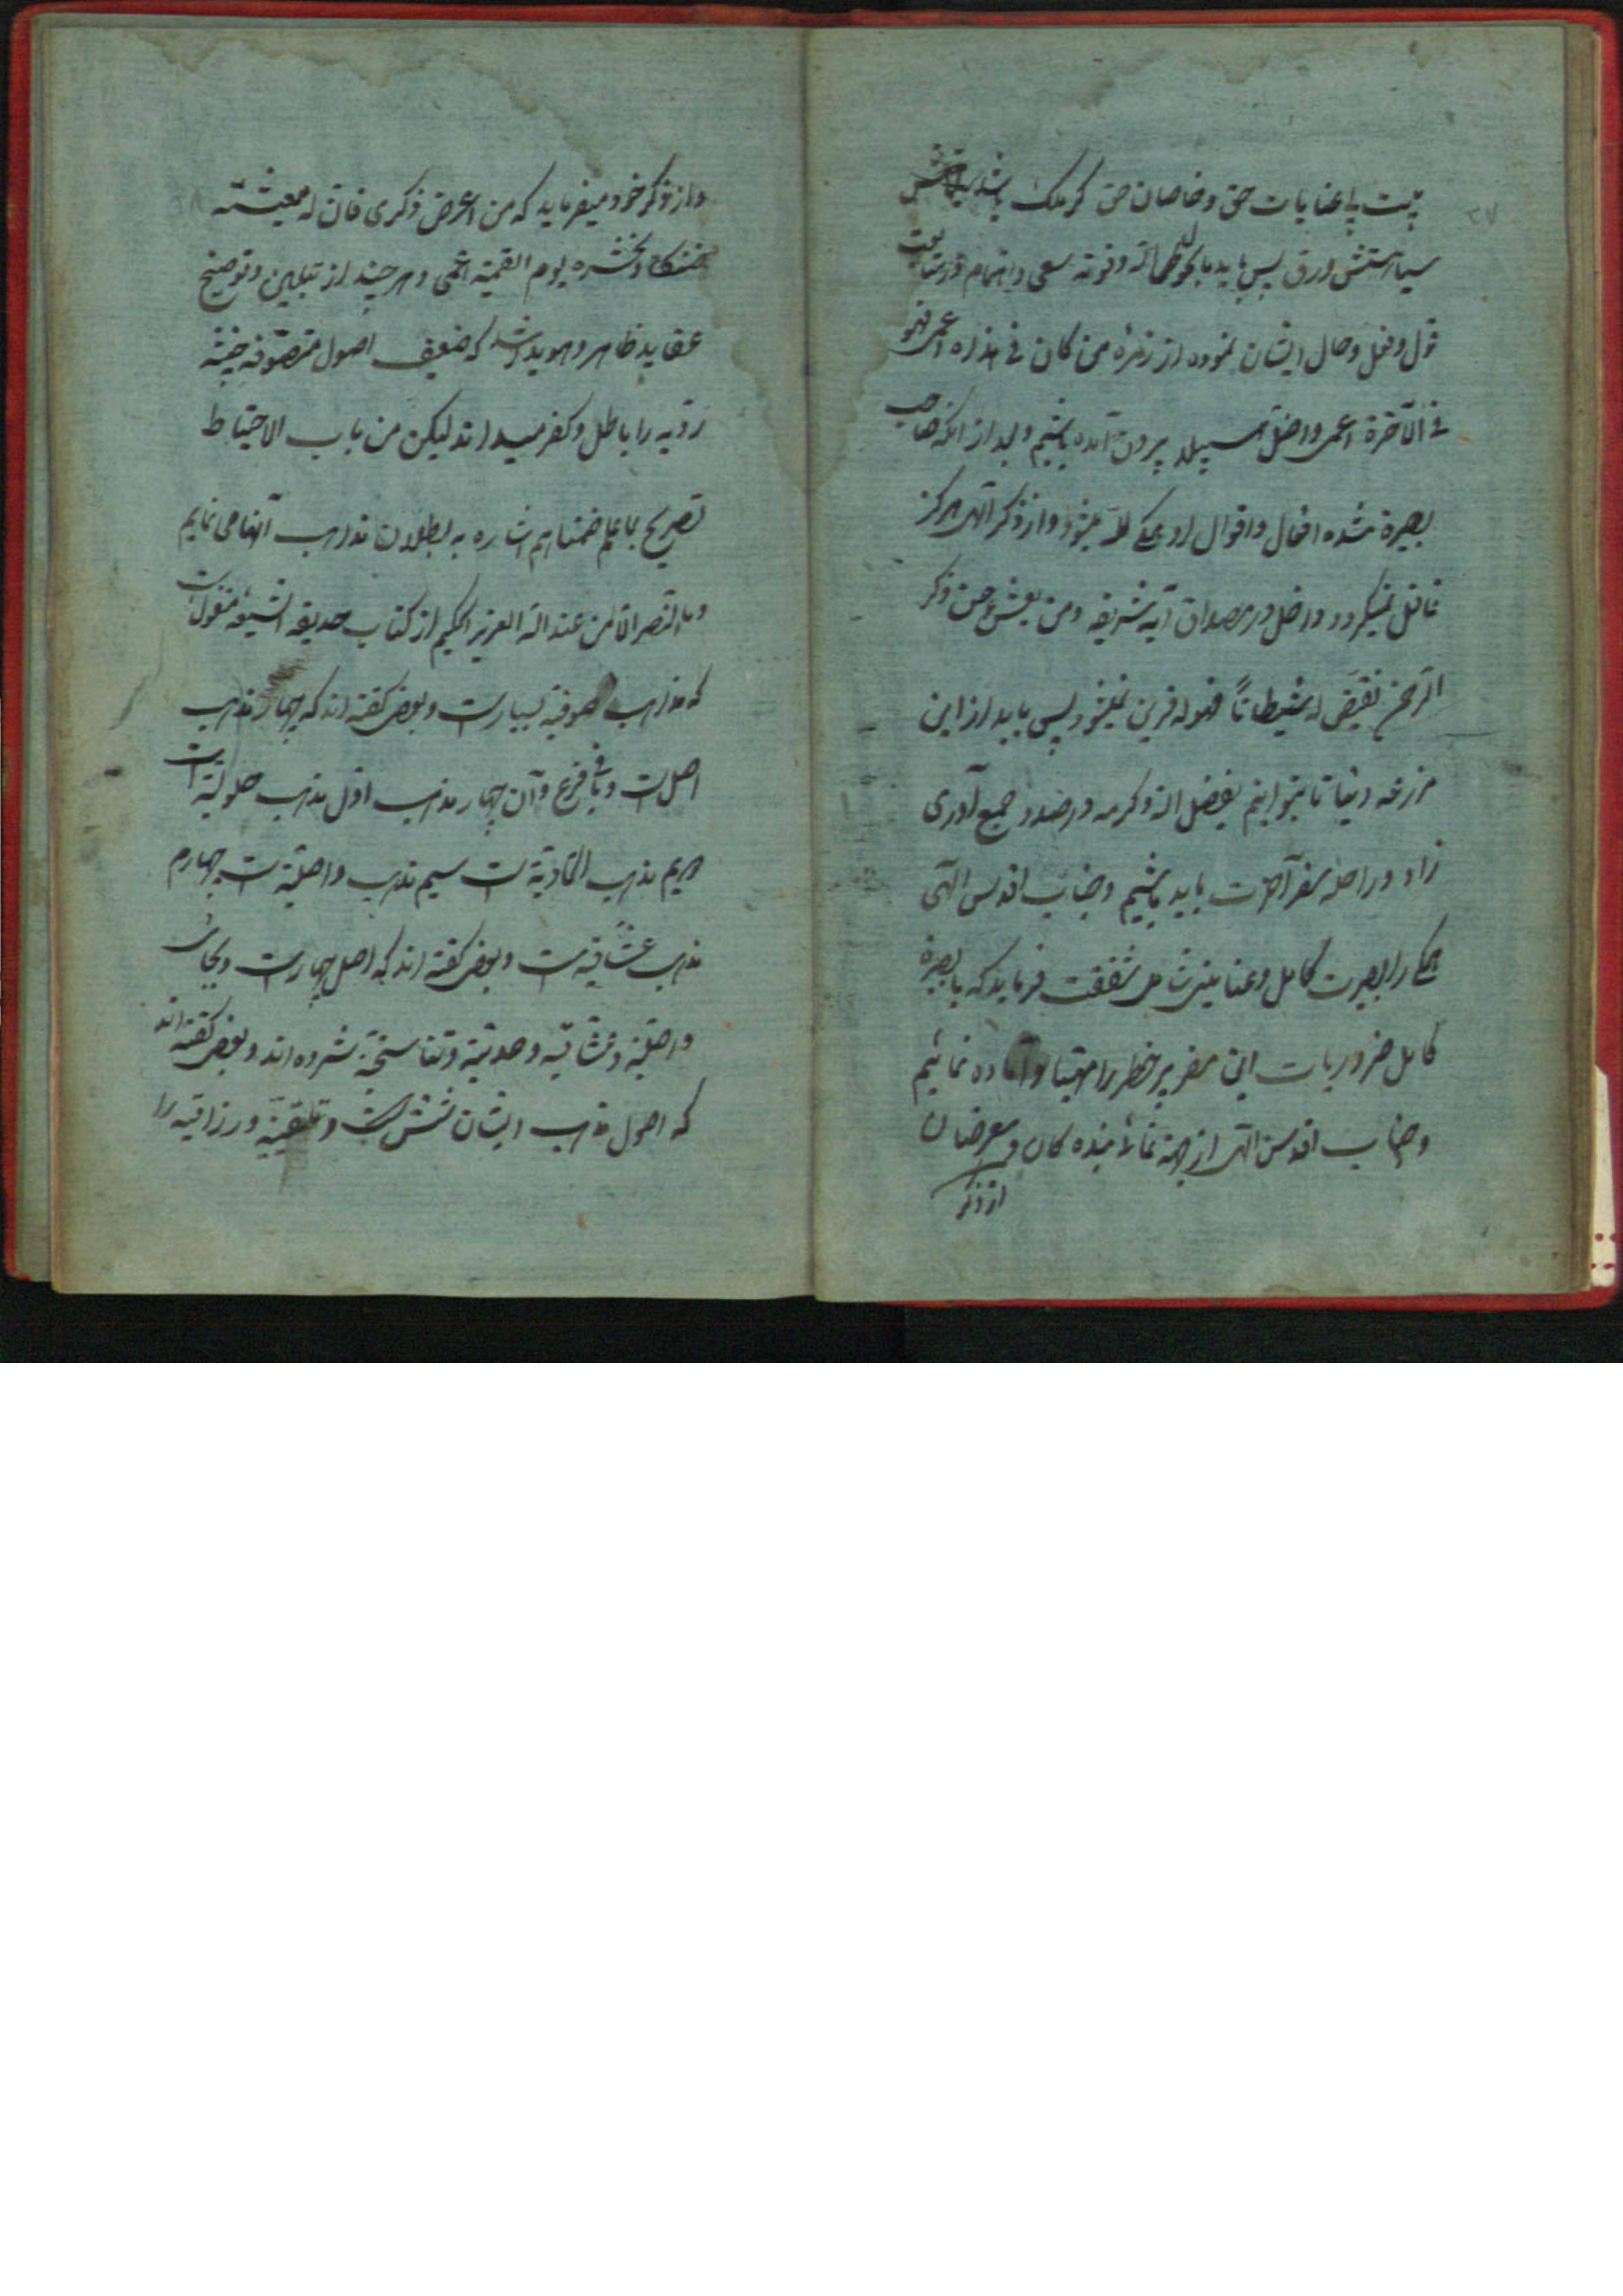 ۳۷
بیت بی عنایات حق و خاصان حق گر ملک باشد
سیاه هستش ورق پس باید بحول الله و قوته سعی و اهتمام در متابعت
قول و فعل و حال ایشان نموده از زمره من کان فی هذه اعمی فهو
فی الآخرة اعمی و اضل سبیلا بیرون آمده باشیم و بعد از آنکه صاحب
بصیرة شده افعال و اقوال او همگی لله میشود و از ذکر الهی هرگز
غافل نمیگردد و داخل در مصداق آیه شریفه و من یعش عن ذکر
الرحمن نقیض له شیطاناً فهو له قرین نمیشود پس باید از این
مزرعه دنیا تا بتوانیم بفضل الله و کرمه در صدد جمع آوری
زاد و راحله سفر آخرت باید باشیم و جناب اقدس الهی
همگی را بصیرت کامل و عنایتی شامل شفقت فرماید که با بصیرة
کامل ضروریات این سفر پر خطر را مهیا و آماده نمائیم
و جناب اقدس الهی از جهة معرضان
از ذکر
و از ذکر خود میفرماید که من اعرض ذکری فان له معیشته
ضنکا و نحشره یوم القیمة اعمی و هر چند از تبیین و توضیح
عقاید ظاهر و هویدا شد که ضعیف اصول متصوفه خبیثه
ردیه را باطل و کفر میداند لیکن من باب الاحتیاط
تصریح بما علم ضمنا هم اشاره به بطلان مذاهب آنها می نمایم
و ما النصر الا من عند الله العزیز الحکیم از کتاب حدیقه الشیعه منقول است
که مذاهب صوفیه بسیار است و بعضی گفته اند که چهار مذهب
اصل است و باقی فرع و آن چهار مذهب اول مذهب حلولیه است
دویم مذهب اتحادیة است سیم مذهب واصلیة است چهارم
مذهب عشاقیه است و بعضی گفته اند که اصل چهار است و بجای
واصلیة و عشاقیه وحدتیة و تناسخیة شمرده اند و بعضی گفته اند
که اصول مذهب ایشان شش است و تلقینیة و رزاقیه را